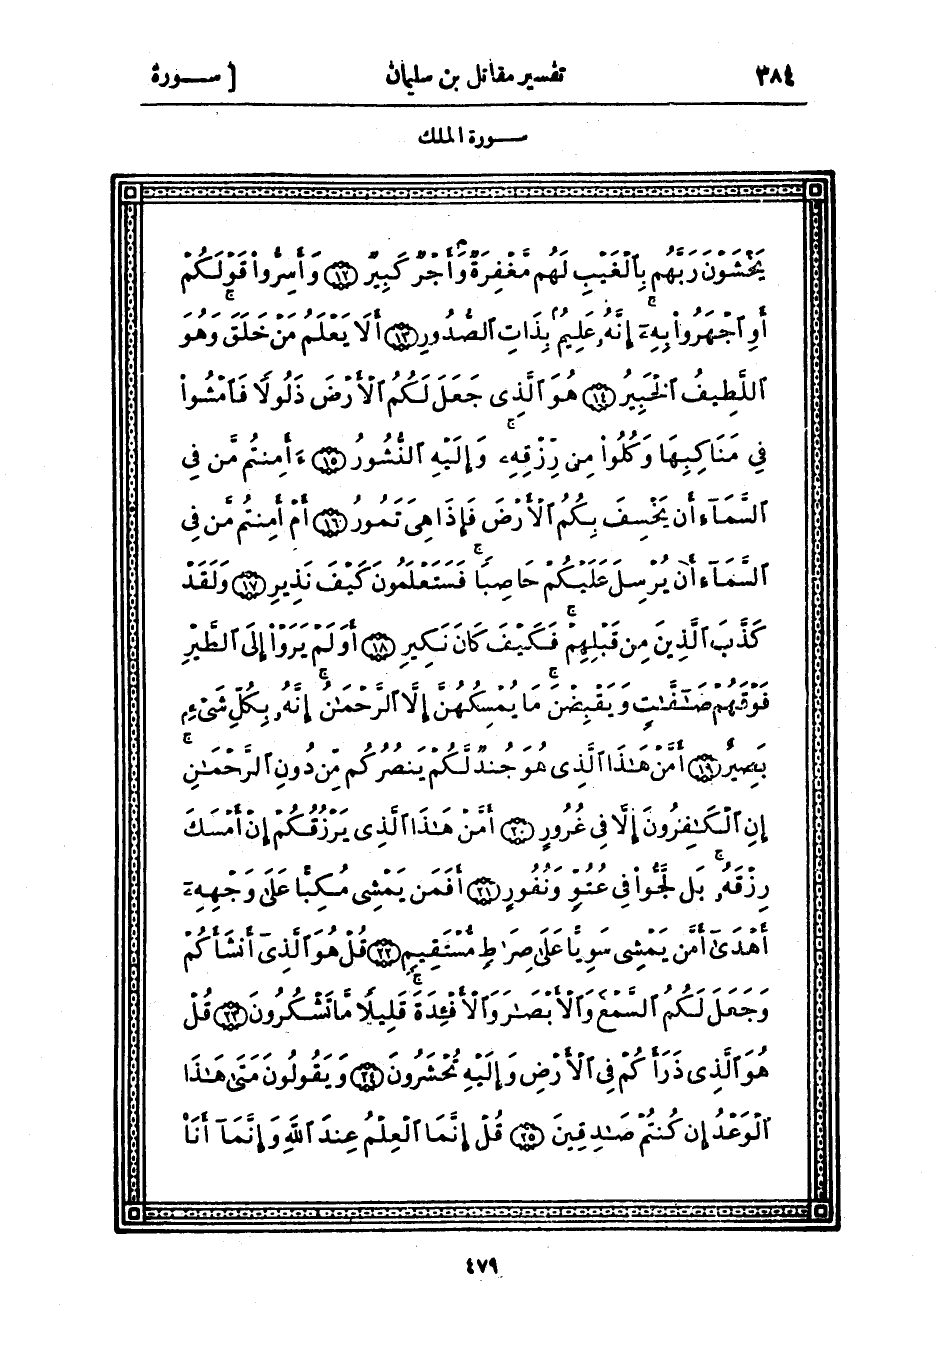 ٣٨٤ تفسير مقاتل بن سليمان [ سـورة
سـورة الملك
يَخْشَوْنَ رَبَّهُم بِٱلْغَيْبِ لَهُم مَّغْفِرَةٌ وَأَجْرٌ كَبِيرٌ ⁧١٢⁩ وَأَسِرُّوا۟ قَوْلَكُمْ
أَوِ ٱجْهَرُوا۟ بِهِۦٓ ۖ إِنَّهُۥ عَلِيمٌۢ بِذَاتِ ٱلصُّدُورِ ١٣ أَلَا يَعْلَمُ مَنْ خَلَقَ وَهُوَ
ٱللَّطِيفُ ٱلْخَبِيرُ ١٤ هُوَ ٱلَّذِى جَعَلَ لَكُمُ ٱلْأَرْضَ ذَلُولًا فَٱمْشُوا۟
فِى مَنَاكِبِهَا وَكُلُوا۟ مِن رِّزْقِهِۦ ۖ وَإِلَيْهِ ٱلنُّشُورُ ١٥ ءَأَمِنتُم مَّن فِى
ٱلسَّمَآءِ أَن يَخْسِفَ بِكُمُ ٱلْأَرْضَ فَإِذَا هِىَ تَمُورُ ١٦ أَمْ أَمِنتُم مَّن فِى
ٱلسَّمَآءِ أَن يُرْسِلَ عَلَيْكُمْ حَاصِبًا ۖ فَسَتَعْلَمُونَ كَيْفَ نَذِيرِ ١٧ وَلَقَدْ
كَذَّبَ ٱلَّذِينَ مِن قَبْلِهِمْ ۚ فَكَيْفَ كَانَ نَكِيرِ ١٨ أَوَلَمْ يَرَوْا۟ إِلَى ٱلطَّيْرِ
فَوْقَهُمْ صَـٰٓفَّـٰتٍ وَيَقْبِضْنَ ۚ مَا يُمْسِكُهُنَّ إِلَّا ٱلرَّحْمَـٰنُ ۚ إِنَّهُۥ بِكُلِّ شَىْءٍۭ
بَصِيرٌ ١٩ أَمَّنْ هَـٰذَا ٱلَّذِى هُوَ جُندٌ لَّكُمْ يَنصُرُكُم مِّن دُونِ ٱلرَّحْمَـٰنِ ۚ
إِنِ ٱلْكَـٰفِرُونَ إِلَّا فِى غُرُورٍ ٢٠ أَمَّنْ هَـٰذَا ٱلَّذِى يَرْزُقُكُمْ إِنْ أَمْسَكَ
رِزْقَهُۥ ۚ بَل لَّجُّوا۟ فِى عُتُوٍّ وَنُفُورٍ ٢١ أَفَمَن يَمْشِى مُكِبًّا عَلَىٰ وَجْهِهِۦٓ
أَهْدَىٰٓ أَمَّن يَمْشِى سَوِيًّا عَلَىٰ صِرَٰطٍ مُّسْتَقِيمٍ ٢٢ قُلْ هُوَ ٱلَّذِىٓ أَنشَأَكُمْ
وَجَعَلَ لَكُمُ ٱلسَّمْعَ وَٱلْأَبْصَـٰرَ وَٱلْأَفْـِٔدَةَ ۚ قَلِيلًا مَّا تَشْكُرُونَ ٢٣ قُلْ
هُوَ ٱلَّذِى ذَرَأَكُمْ فِى ٱلْأَرْضِ وَإِلَيْهِ تُحْشَرُونَ ٢٤ وَيَقُولُونَ مَتَىٰ هَـٰذَا
ٱلْوَعْدُ إِن كُنتُمْ صَـٰدِقِينَ ٢٥ قُلْ إِنَّمَا ٱلْعِلْمُ عِندَ ٱللَّهِ وَإِنَّمَآ أَنَا۠
٤٧٩